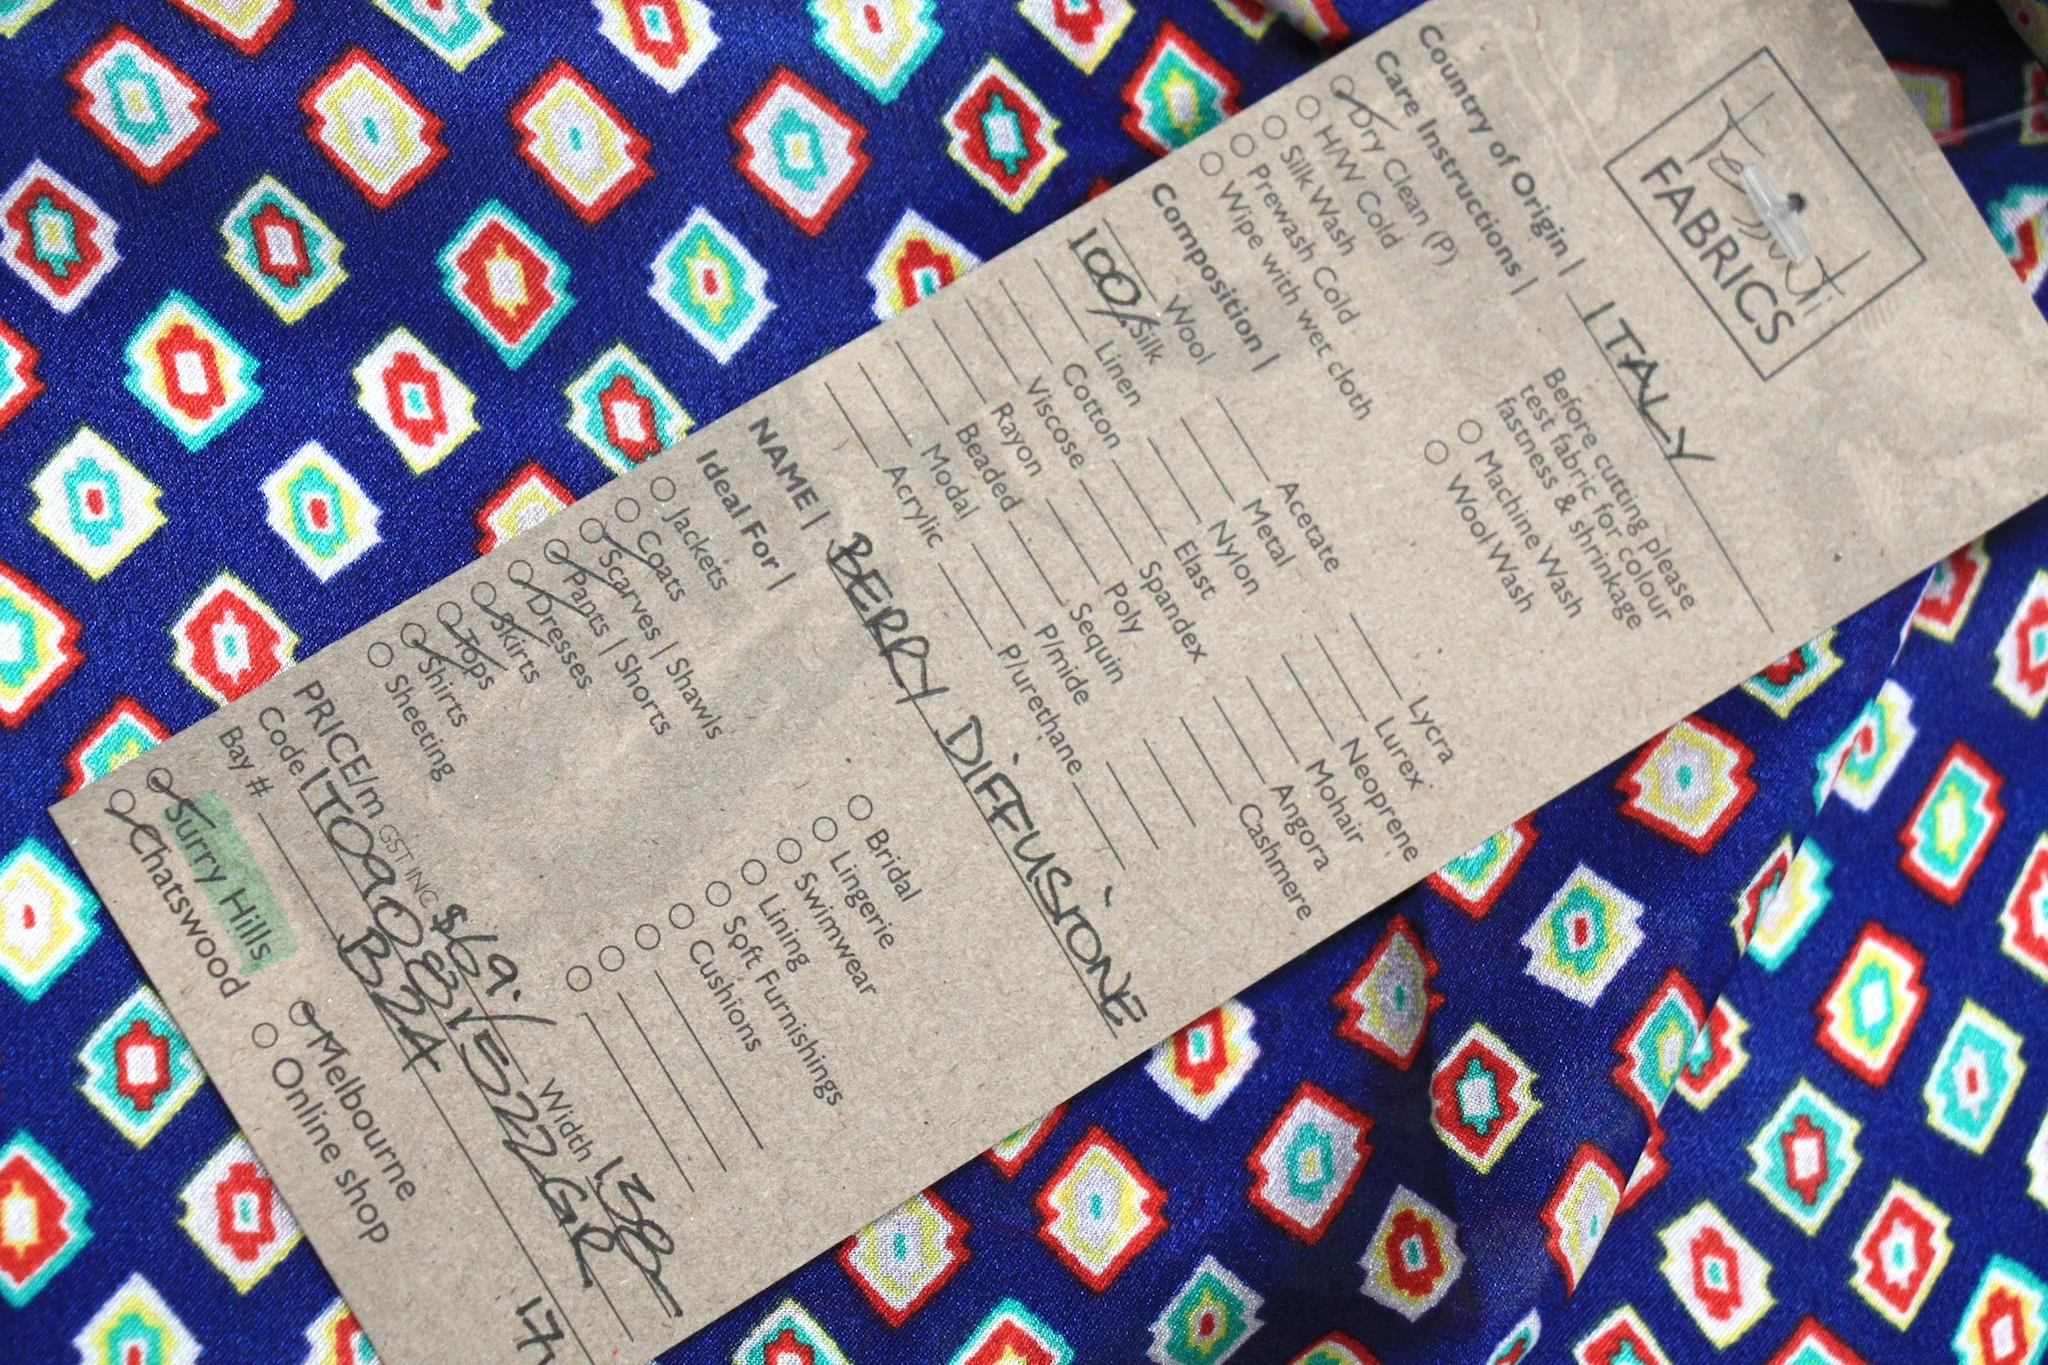 Tessuti
FABRICS
Country of Origin | ITALY
Care Instructions |
Dry Clean (P)
H/W Cold
Silk Wash
Prewash Cold
Wipe with wet cloth
Before cutting please
test fabric for colour
fastness & shrinkage
Machine Wash
Wool Wash
Composition |
Wool
100% Silk
Linen
Cotton
Viscose
Rayon
Beaded
Modal
Acrylic
Acetate
Metal
Nylon
Elast
Spandex
Poly
Sequin
P/mide
P/urethane
Lycra
Lurex
Neoprene
Mohair
Angora
Cashmere
NAME | BERRY DIFFUSIONE
Ideal For |
Jackets
Coats
Scarves | Shawls
Pants | Shorts
Dresses
Skirts
Tops
Shirts
Sheeting
Bridal
Lingerie
Swimwear
Lining
Soft Furnishings
Cushions
PRICE/m GST INC $69.- Width 138-
Code IT090815522GR
Bay # B24
Surry Hills
Chatswood
Melbourne
Online shop